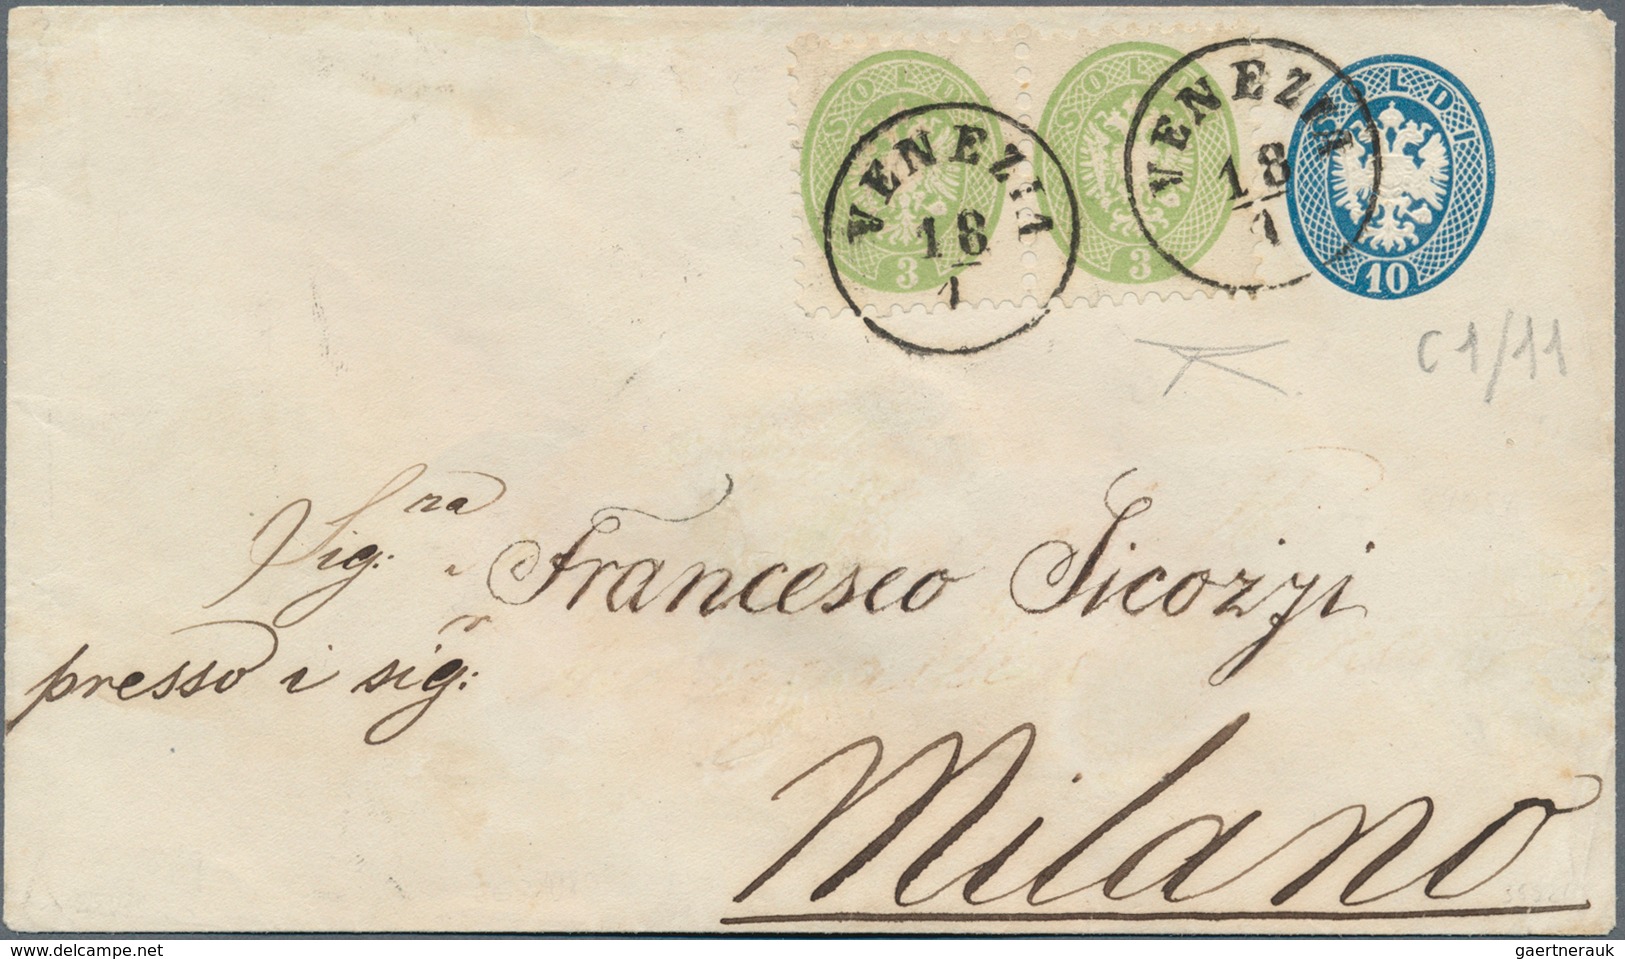 SOLDI 3
SOLDI 3
SOLDI 10
VENEZIA
18
1
VENEZIA
18
1
C 1/11
Sig:ra Francesco Sicozzi
presso i sig:ri
Milano
www.delcampe.net
gaertnerauk